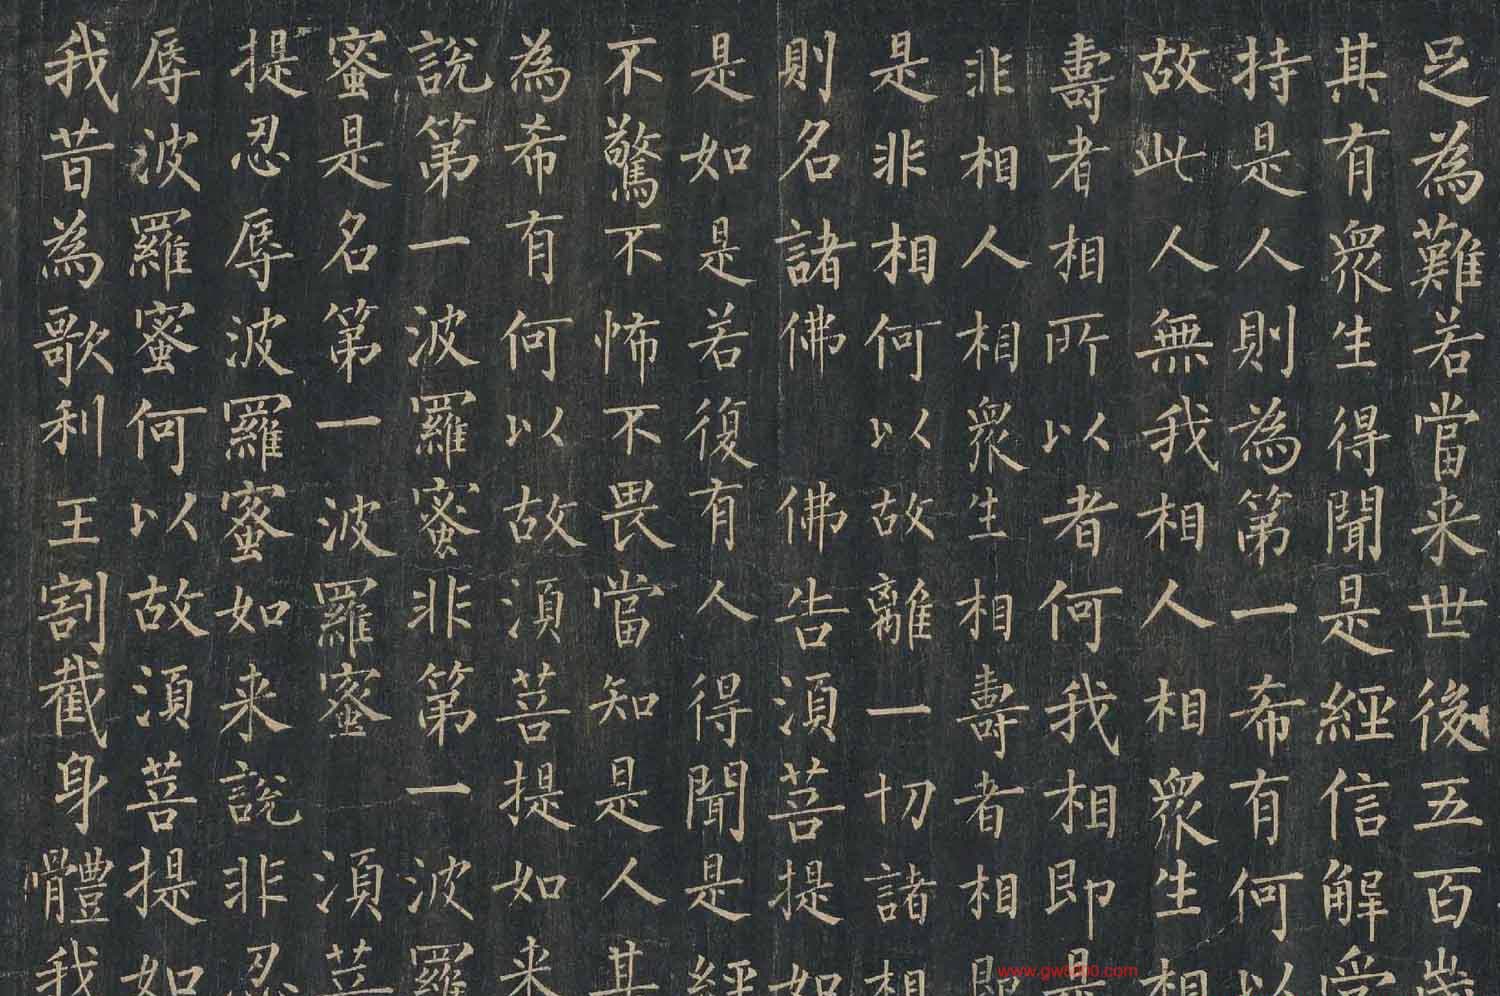 足為難若當来世後五百歲
其有衆生得聞是經信解受
持是人則為第一希有何以
故此人無我相人相衆生相
壽者相所以者何我相即是
非相人相衆生相壽者相即
是非相何以故離一切諸相
則名諸佛佛告須菩提如
是如是若復有人得聞是經
不驚不怖不畏當知是人甚
為希有何以故須菩提如来
說第一波羅蜜非第一波羅
蜜是名第一波羅蜜須菩
提忍辱波羅蜜如来說非忍
辱波羅蜜何以故須菩提如
我昔為歌利王割截身體我